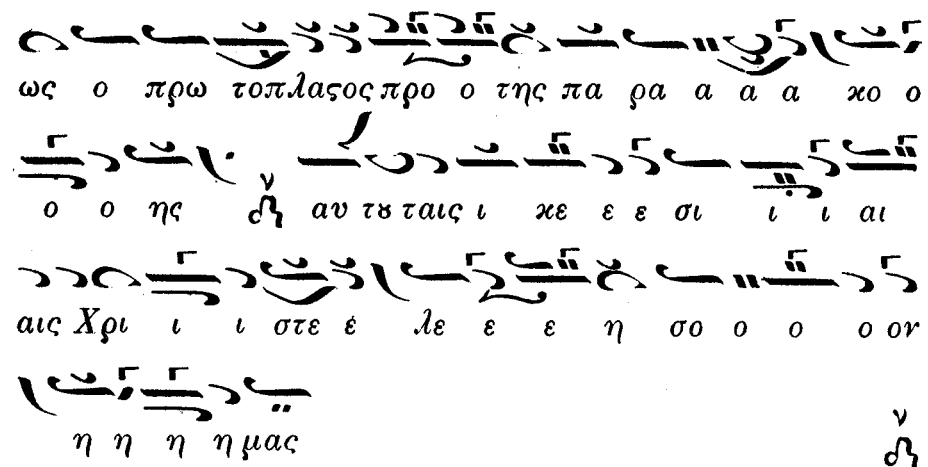 ως ο πρω τοπλαϛος προ ο της πα ρα α α α κο ο
ο ο ης αυ τȣ ταις ι κε ε ε σι ι ι αι
αις Χρι ι ι στε έ λε ε ε η σο ο ο ο ον
η η η η μας